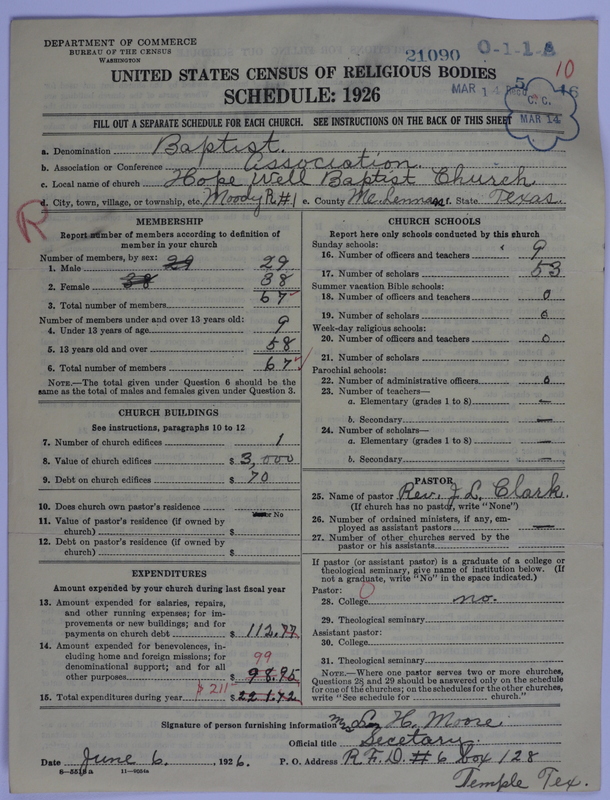 DEPARTMENT OF COMMERCE
BUREAU OF THE CENSUS
WASHINGTON
21090 O-1-1-A
10
MAR 14
C. C.
MAR 14
UNITED STATES CENSUS OF RELIGIOUS BODIES
SCHEDULE: 1926
FILL OUT A SEPARATE SCHEDULE FOR EACH CHURCH. SEE INSTRUCTIONS ON THE BACK OF THIS SHEET
a. Denomination Baptist.
b. Association or Conference Association.
c. Local name of church Hope Well Baptist Church
d. City, town, village, or township, etc. Moody R#1 e. County McLennan f. State Texas.
R
MEMBERSHIP
Report number of members according to definition of
member in your church
Number of members, by sex:
1. Male 29 29
2. Female 38 38
3. Total number of members 67
Number of members under and over 13 years old:
4. Under 13 years of age 9
5. 13 years old and over 58
6. Total number of members 67
NOTE.—The total given under Question 6 should be
same as the total of males and females given under Question 3.
CHURCH BUILDINGS
See instructions, paragraphs 10 to 12
7. Number of church edifices 1
8. Value of church edifices $ 3,000
9. Debt on church edifices $ 70
10. Does church own pastor's residence
Yes or No
11. Value of pastor's residence (if owned by
church) $
12. Debt on pastor's residence (if owned by
church) $
EXPENDITURES
Amount expended by your church during last fiscal year
13. Amount expended for salaries, repairs,
and other running expenses; for im-
provements or new buildings; and for
payments on church debt $ 112.77
14. Amount expended for benevolences, in-
cluding home and foreign missions; for
denominational support; and for all
other purposes $ 98.95
99
$ 211
15. Total expenditures during year $
CHURCH SCHOOLS
Report here only schools conducted by this church
Sunday schools:
16. Number of officers and teachers 9
17. Number of scholars 53
Summer vacation Bible schools:
18. Number of officers and teachers 0
19. Number of scholars 0
Week-day religious schools:
20. Number of officers and teachers 0
21. Number of scholars
Parochial schools:
22. Number of administrative officers 0
23. Number of teachers—
a. Elementary (grades 1 to 8) —
b. Secondary —
24. Number of scholars—
a. Elementary (grades 1 to 8) —
b. Secondary —
PASTOR
25. Name of pastor Rev. J. L. Clark.
(If church has no pastor, write "None")
26. Number of ordained ministers, if any, em-
ployed as assistant pastors —
27. Number of other churches served by the
pastor or his assistants
If pastor (or assistant pastor) is a graduate of a college or
theological seminary, give name of institution below. (If
not a graduate, write "No" in the space indicated.)
Pastor: 0
28. College no.
29. Theological seminary
Assistant pastor:
30. College
31. Theological seminary
NOTE.—Where one pastor serves two or more churches,
Questions 28 and 29 should be answered only on the schedule
for one of the churches; on the schedules for the other churches,
write "See schedule for church."
Signature of person furnishing information H. Moore
Official title Secetary.
Date June 6, 1926. P. O. Address R.F.D. #6 box 128
Temple Tex.
6—5518a 11—9054a